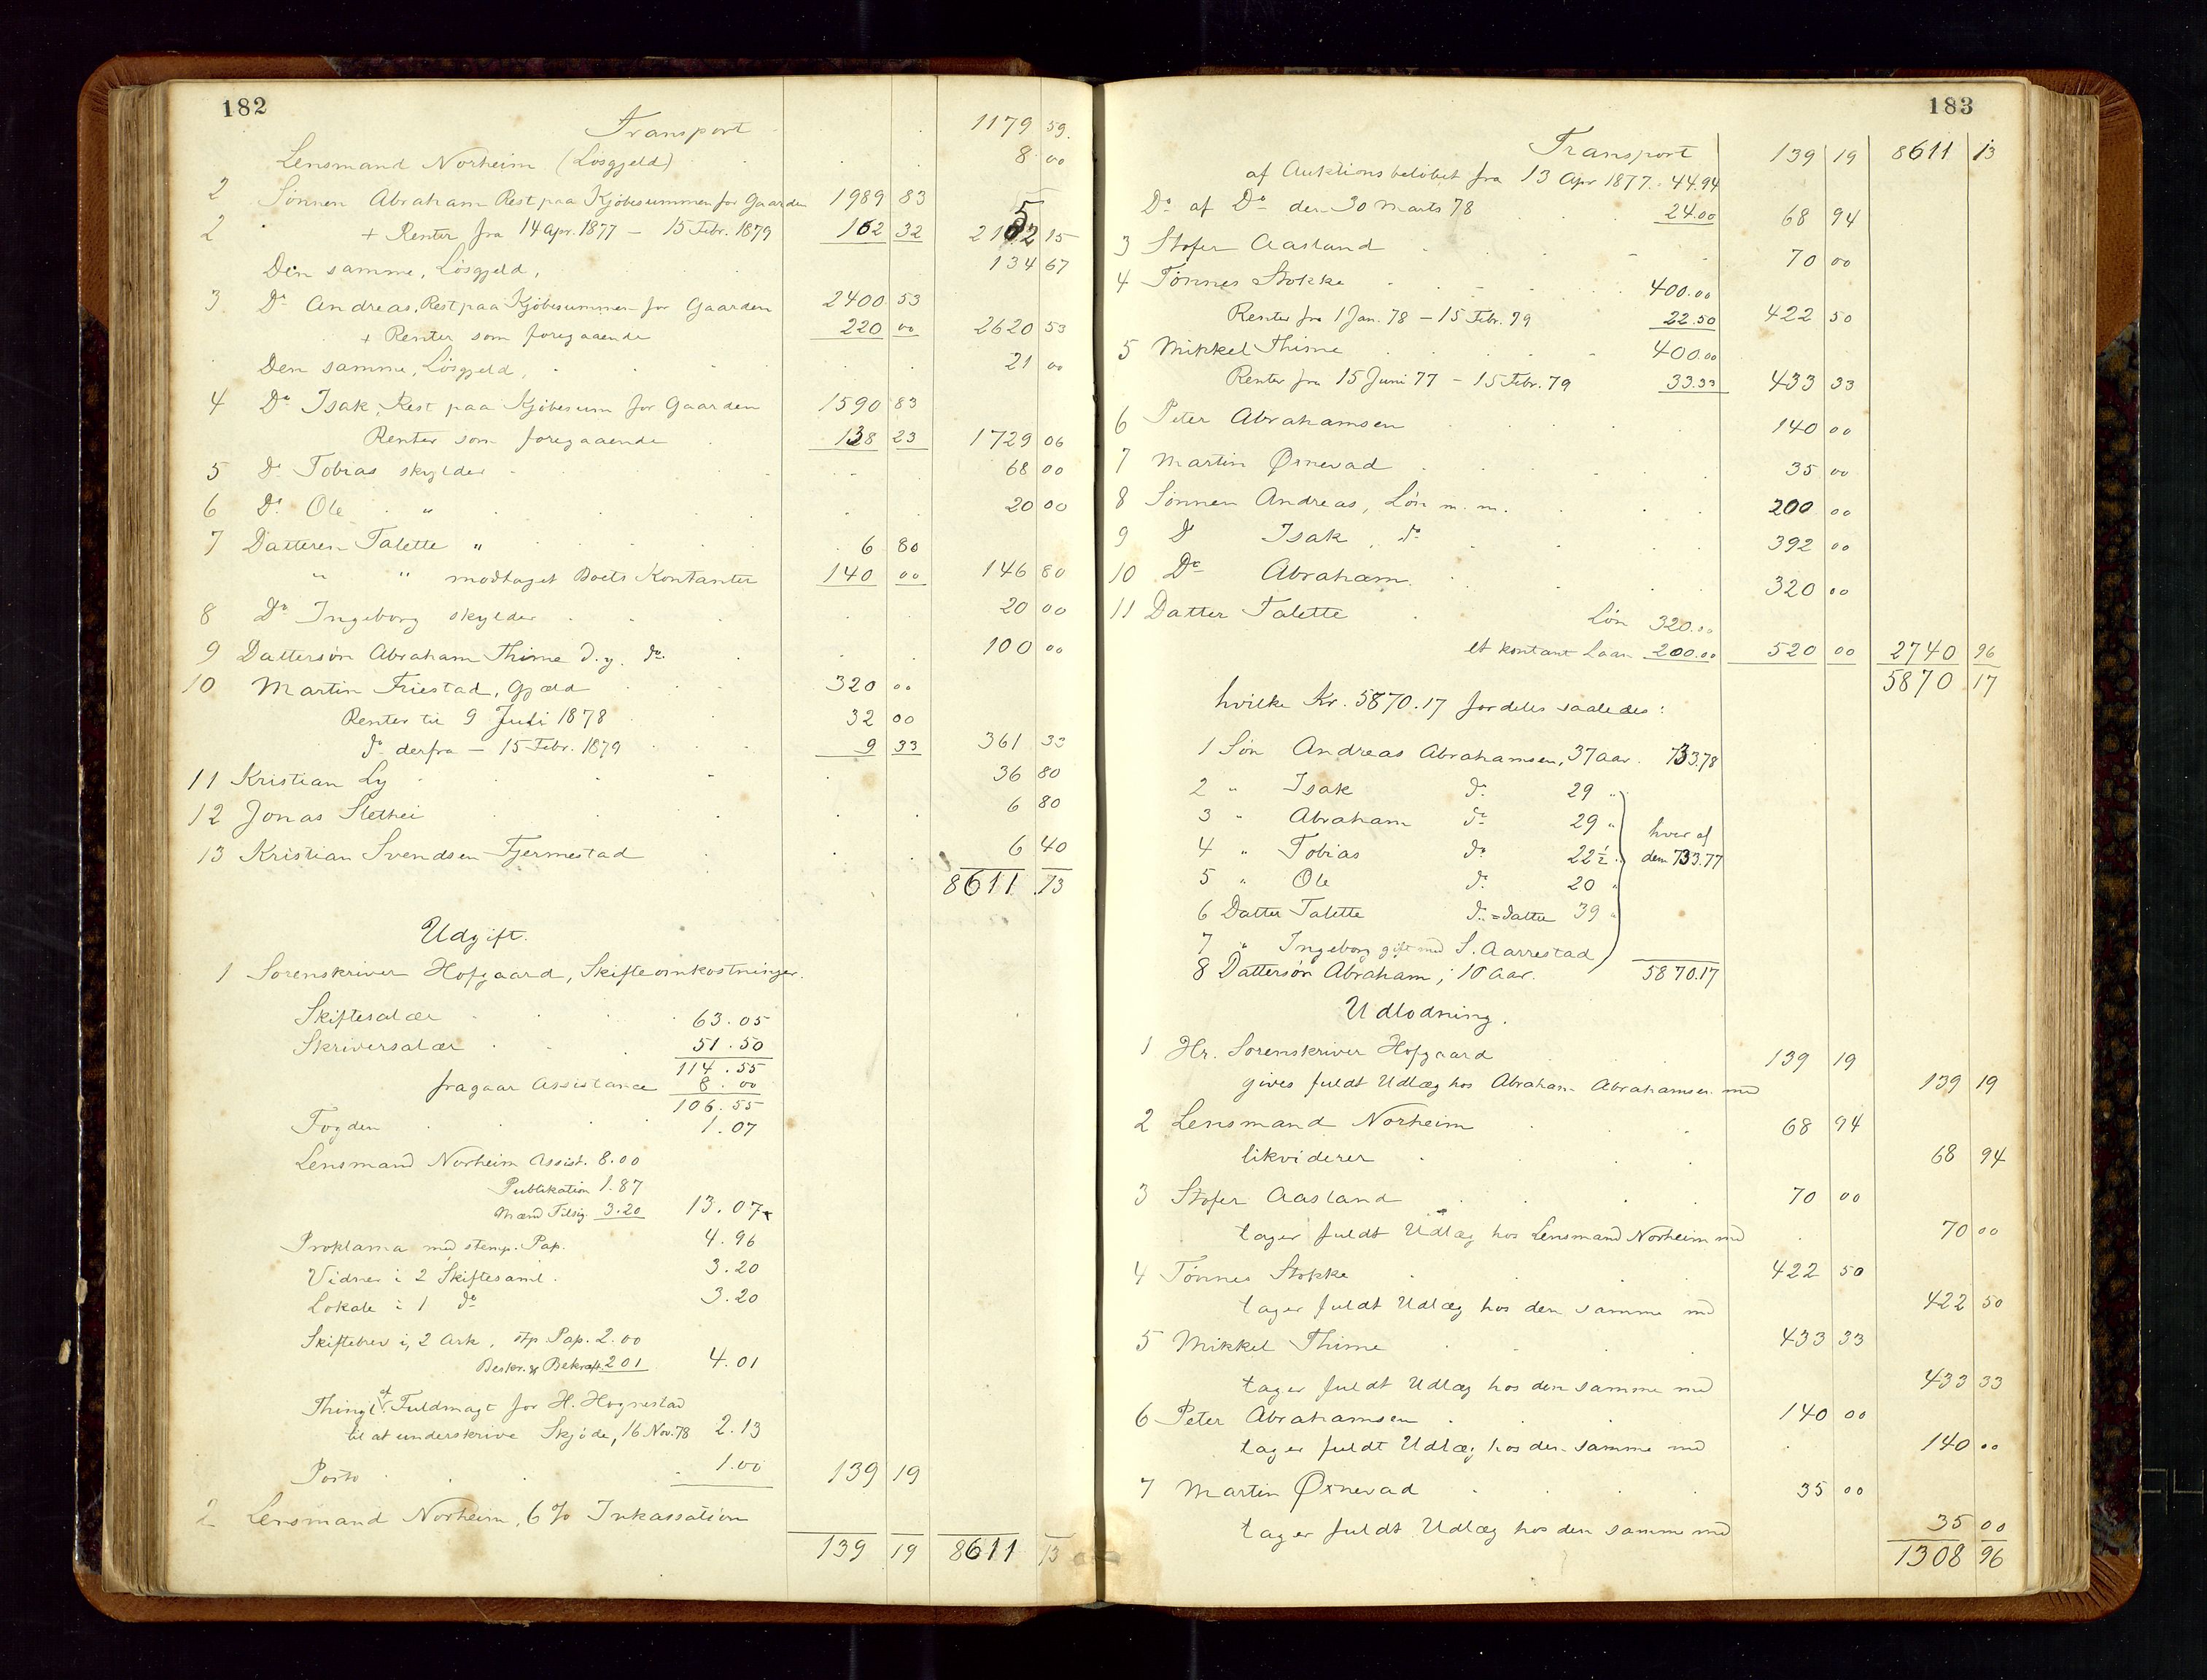 182
Transport 1179 59.
Lensmand Norheim (Løsgjeld) 8 00
2 Sønnen Abraham Rest paa Kjøbesummen for Gaarden 1989 83
2 + Renter fra 14 Apr. 1877 - 15 Febr. 1879 162 32 2152 15
Den samme, Løsgjeld, 134 67
3 Do Andreas, Rest paa Kjøbesummen for Gaarden 2400 53
+ Renter som foregaaende 220 00 2620 53
Den samme, Løsgjeld, 21 00
4 Do Isak, Rest paa Kjøbesum for Gaarden 1590 83
Renter som foregaaende 138 23 1729 06
5 Do Tobias skylder 68 00
6 Do Ole " 20 00
7 Datteren Talette " 6 80
" " modtaget Boets Kontanter 140 00 146 80
8 Do Ingeborg skylder 20 00
9 Dattersøn Abraham Thime d.y. do 100 00
10 Martin Friestad, Gjæld 320 00
Renter til 9 Juli 1878 32 00
do derfra - 15 Febr. 1879 9 33 361 33
11 Kristian Ly 36 80
12 Jonas Slethei 6 80
13 Kristian Svendsen Fjermestad 6 40
8611 13
Udgift.
1 Sorenskriver Hofgaard, Skifteomkostninger.
Skiftesalær 63.05
Skriversalær 51.50
114.55
fragaar Assistance 8.00
106.55
Fogden 1.07
Lensmand Norheim Assist. 8.00
Publikation 1.87
Mænd Tilsig. 3.20 13.07
Proklama med stemp. Pap. 4.96
Vidner i 2 Skiftesaml. 3.20
Lokale i 1 do 3.20
Skiftebrev i, 2 Ark, stp. Pap. 2.00
Beskr. og Bekræft. 2 01 4.01
Thingl. af Fuldmagt for H. Hognestad
til at underskrive Skjøde, 16 Nov. 78 2.13
Porto 1.00 139 19
2 Lensmand Norheim, 6 % Inkassation
139 19 8611 13
183
Transport 139 19 8611 13
af Auktionsbeløbet fra 13 Apr 1877. 44.94
Do af Do den 30 Marts 78 24.00 68 94
3 Stofer Aasland 70 00
4 Tønnes Stokke 400.00
Renter fra 1 Jan. 78 - 15 Febr. 79 22.50 422 50
5 Mikkel Thime 400.00
Renter fra 15 Juni 77 - 15 Febr. 79 33.33 433 33
6 Peter Abrahamsen 140 00
7 Martin Øxnevad 35 00
8 Sønnen Andreas, Løn m. m. 200 00
9 Do Isak, do 392 00
10 Do Abraham. 320 00
11 Datter Talette Løn 320.00
et kontant Laan 200.00 520 00 2740 96
5870 17
hvilke Kr. 5870.17 fordeles saaledes:
1 Søn Andreas Abrahamsen, 37 aar. 733.78
2 " Isak do 29 "
3 " Abraham do 29 " hver af
4 " Tobias do 22½ " dem 733.77
5 " Ole do 20 "
6 Datter Talette do=datter 39 "
7 " Ingeborg gift med S. Aarrestad
8 Dattersøn Abraham, 10 aar. 5870.17
Udlodning.
1 Hr. Sorenskriver Hofgaard 139 19
gives fuldt Udlæg hos Abraham Abrahamsen med 139 19
2 Lensmand Norheim 68 94
likviderer 68 94
3 Stofer Aasland 70 00
tager fuldt Udlæg hos Lensmand Norheim med 70 00
4 Tønnes Stokke 422 50
tager fuldt Udlæg hos den samme md 422 50
5 Mikkel Thime 433 33
tager fuldt Udlæg hos den samme med 433 33
6 Peter Abrahamsen 140 00
tager fuldt Udlæg hos den samme med 140 00
7 Martin Øxnevad 35 00
tager fuldt Udlæg hos den samme med 35 00
1308 96